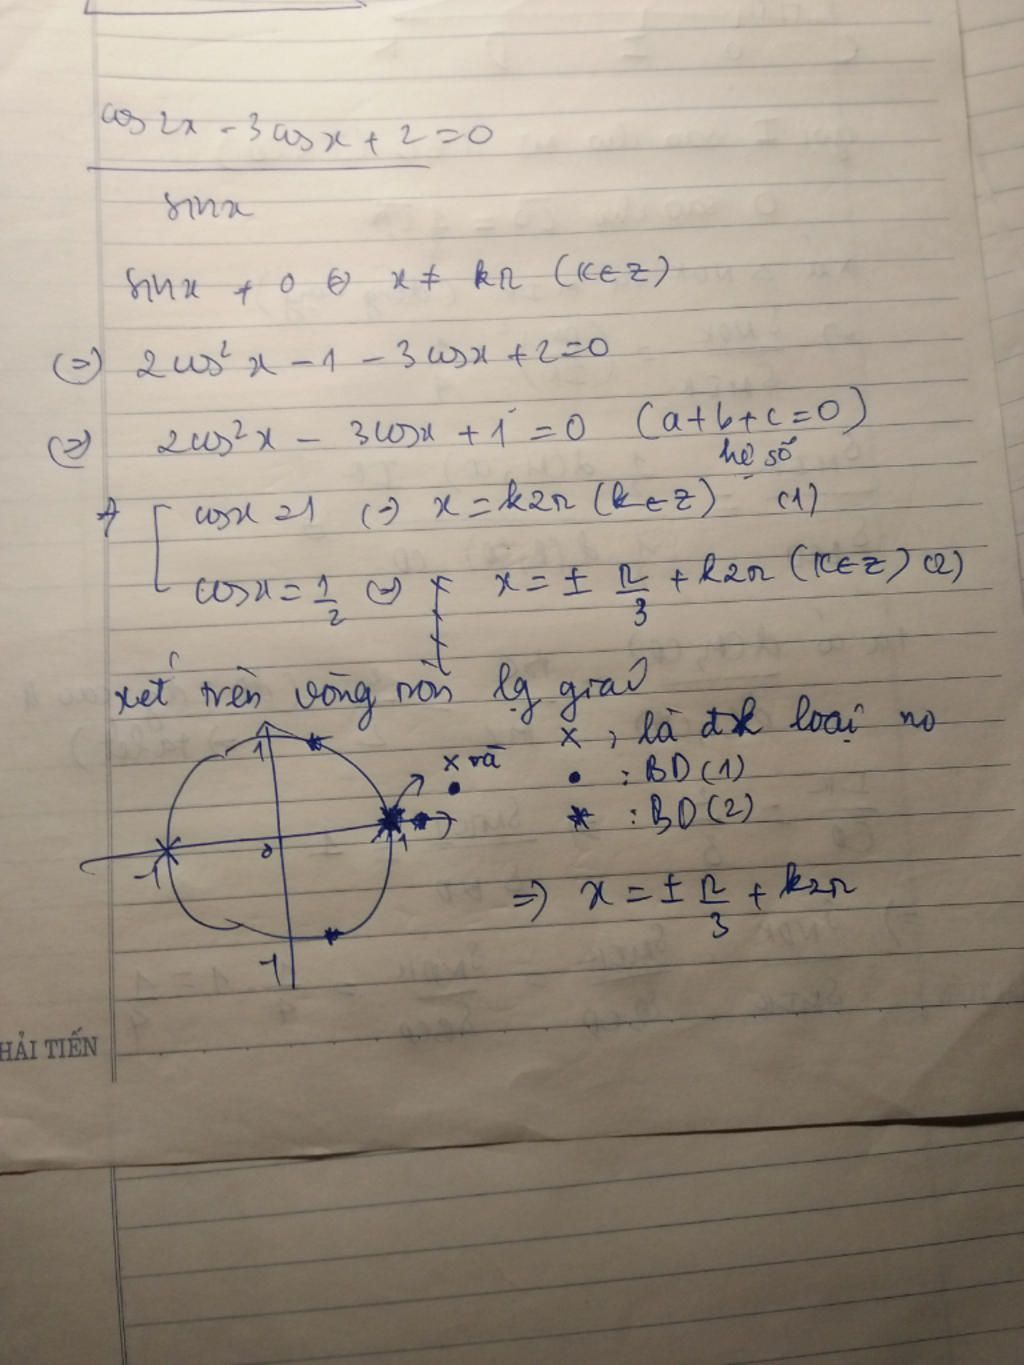 cos2x - 3cosx + 2 = 0
sinx
sinx ≠ 0 ⇔ x ≠ kπ (k∈Z)
(=) 2cos²x - 1 - 3cosx + 2 = 0
(=) 2cos²x - 3cosx + 1 = 0 (a+b+c=0)
hệ số
⇒ [ cosx = 1 (=) x = k2π (k∈Z) (1)
cosx = 1/2 (=) x = ± π/3 + k2π (k∈Z) (2)
xét trên vòng tròn lg giác
1 × , là đk loại no
× và • • : BD(1)
* : BD(2)
-1 0 1
⇒ x = ± π/3 + k2π
-1
HẢI TIẾN